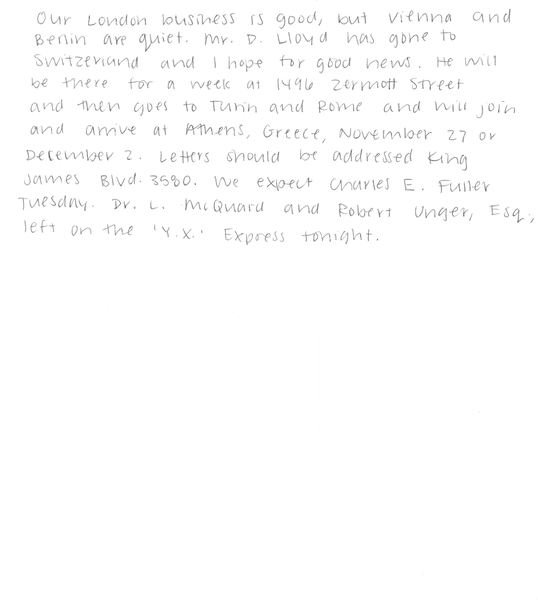 Our London business is good, but Vienna and
Berlin are quiet. Mr. D. Lloyd has gone to
Switzerland and I hope for good news. He will
be there for a week at 1496 Zermott Street
and then goes to Turin and Rome and will join
and arrive at Athens, Greece, November 27 or
December 2. Letters should be addressed King
James Blvd. 3580. We expect Charles E. Fuller
Tuesday. Dr. L. McQuard and Robert Unger, Esq.,
left on the 'Y.X.' Express tonight.